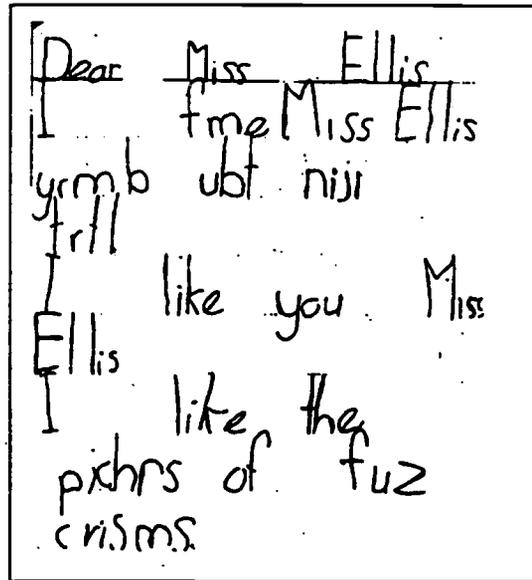 Dear Miss Ellis
I fme Miss Ellis
yrmb ubt niji
trll
I like you Miss
Ellis
I like the
pixhrs of fuz
crisms.